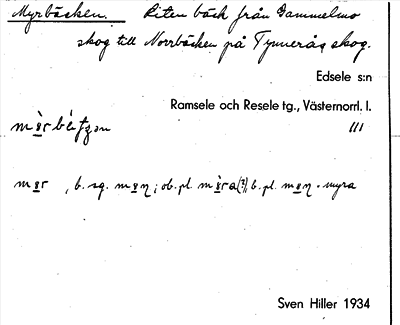 Myrbäcken. Liten bäck från Gammelmo
skog till Norrbäcken på Tynnerås skog.
Edsele s:n
Ramsele och Resele tg., Västernorrl. l.
III
, b. sg. ; ob. pl. (?), b. pl. = myra
Sven Hiller 1934